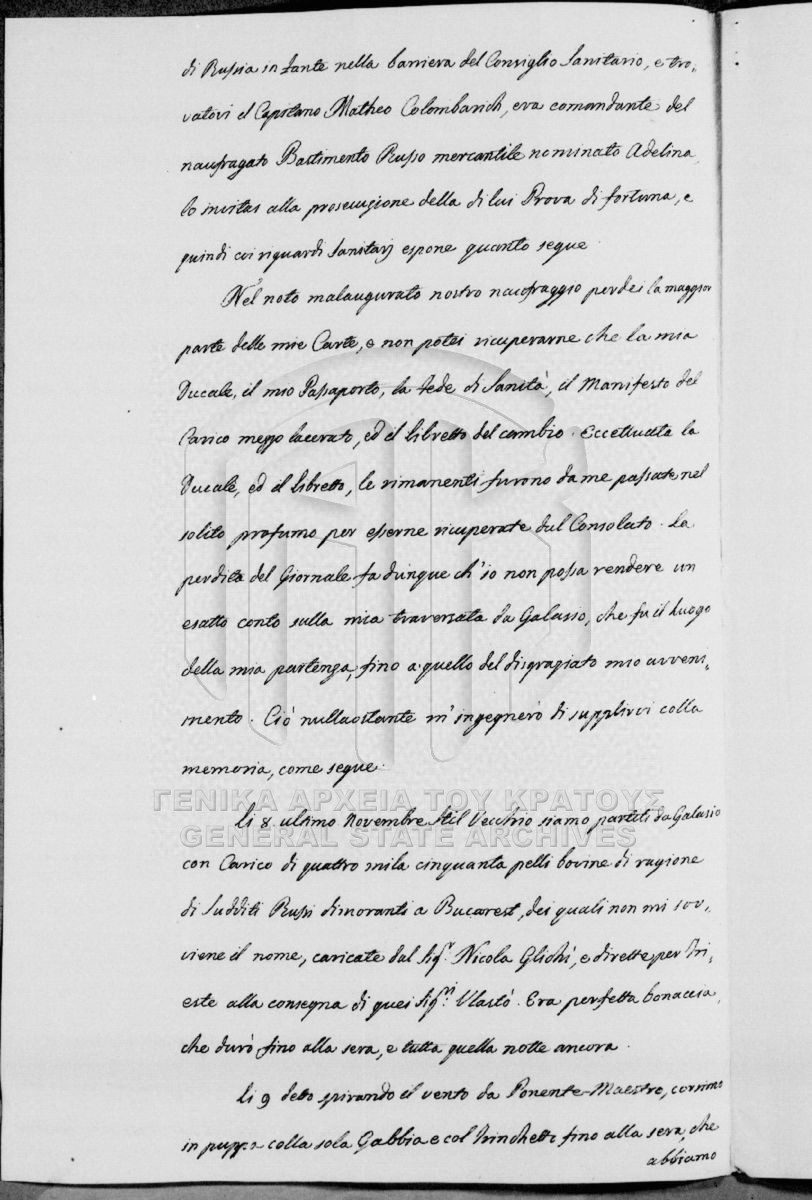 di Russia in Zante nella barriera del Consiglio Sanitario, e tro-
vatovi il Capitano Matheo Colombarich, era comandante del
naufragato Bastimento Russo mercantile nominato Adelina,
lo invitai alla prosecuzione della di lui Prova di fortuna, e
quindi coi riguardi Sanitarj espone quanto segue.
Nel noto malaugurato nostro naufraggio perdei la maggior
parte delle mie Carte, e non potei ricuperarne che la mia
Ducale, il mio Passaporto, la Fede di Sanità, il Manifesto del
Carico mezzo lacerato, ed il libretto del cambio. Eccettuata la
Ducale, ed il libretto, le rimanenti furono da me passate nel
solito profumo per esserne ricuperate dal Consolato. La
perdita del Giornale fa dunque ch'io non possa rendere un
esatto conto sulla mia traversata da Galasso, che fu il luogo
della mia partenza, fino a quello del disgraziato mio avveni-
mento. Ciò nullaostante m'ingegnerò di supplirvi colla
memoria, come segue.
ΓΕΝΙΚΑ ΑΡΧΕΙΑ ΤΟΥ ΚΡΑΤΟΥΣ
Li 8 ultimo Novembre Stil Vecchio siamo partiti da Galasso
GENERAL STATE ARCHIVES
con Carico di quattro mila cinquanta pelli bovine di ragione
di Sudditi Russi dimoranti a Bucarest, dei quali non mi sov-
viene il nome, caricate dal Sigr. Nicola Glichì, e dirette per Tri-
este alla consegna di quei Sigri. Vlastò. Era perfetta bonaccia,
che durò fino alla sera, e tutta quella notte ancora.
Li 9 detto spirando il vento da Ponente-Maestro, corsimo
in puppa colla sola Gabbia e col trinchetto fino alla sera, che
abbiamo